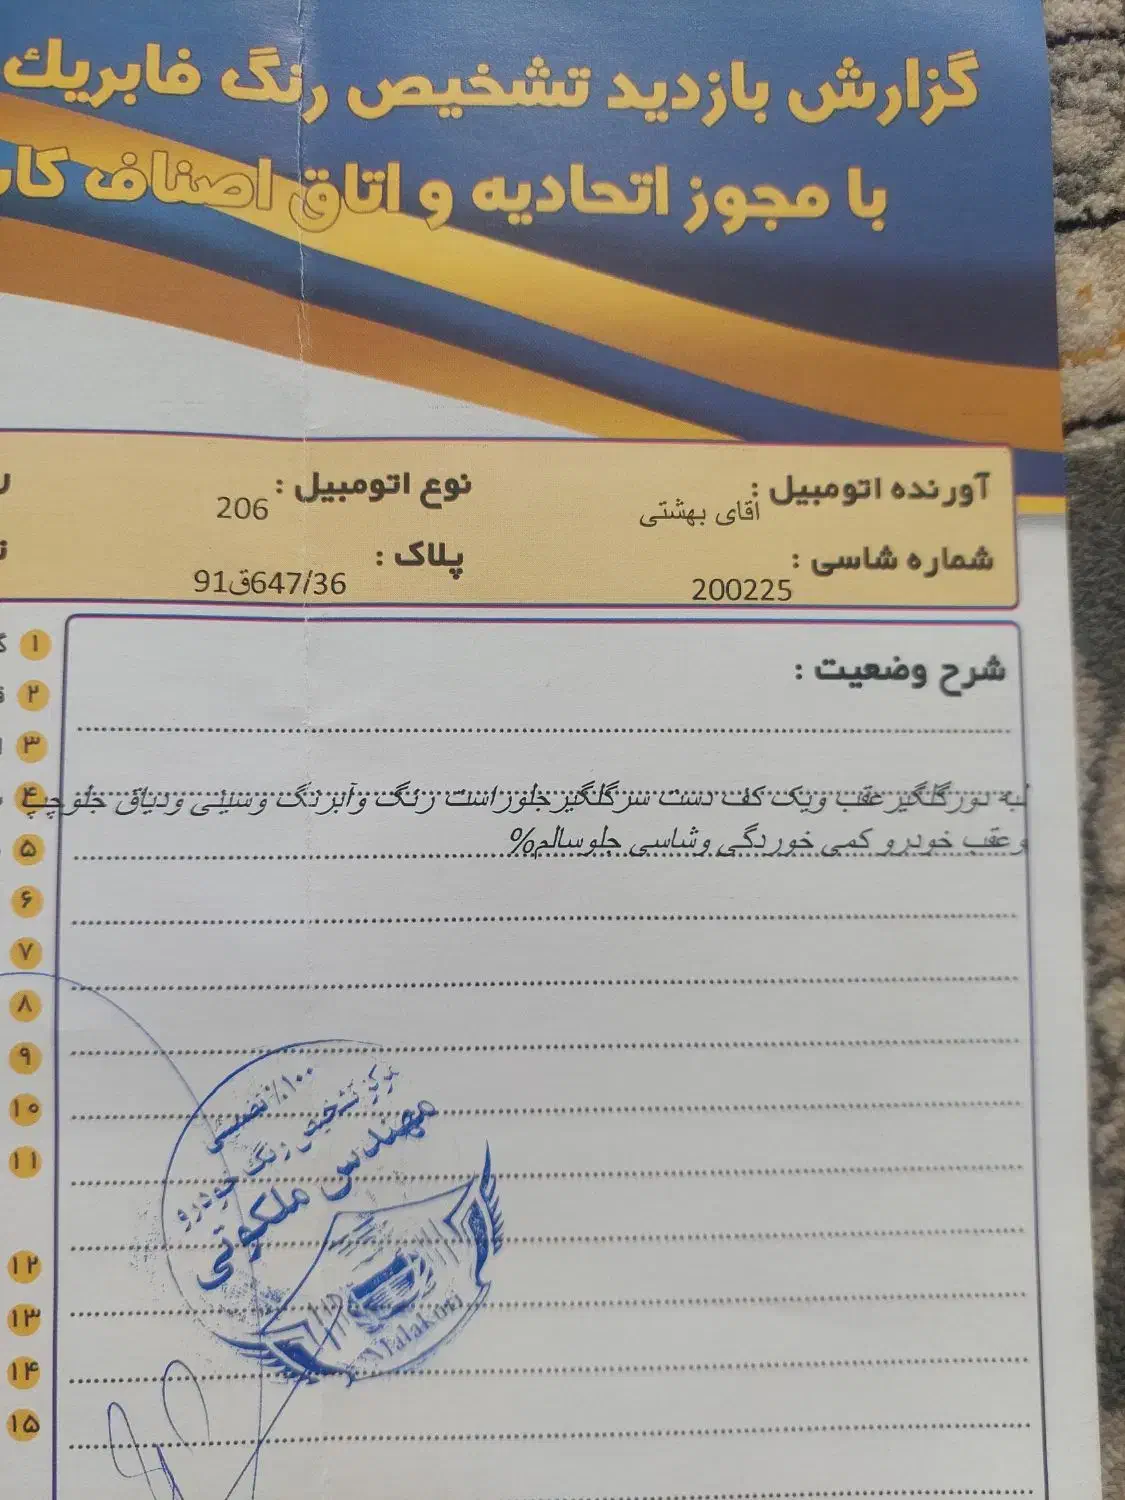 گزارش بازدید تشخیص رنگ فابریك
با مجوز اتحادیه و اتاق اصناف
آورنده اتومبیل :
اقای بهشتی
نوع اتومبیل :
206
شماره شاسی :
200225
پلاک :
91ق647/36
شرح وضعیت :
لبه دورگلگیرعقب ویک کف دست سرگلگیرجلوراست رنگ وآبرنگ وسینی ودیاق جلوچپ
وعقب خودرو کمی خوردگی وشاسی جلوسالم%
۱
۲
۳
۴
۵
۶
۷
۸
۹
۱۰
۱۱
۱۲
۱۳
۱۴
۱۵
۱۰۰٪ تخصصی
مرکز تشخیص رنگ خودرو
مهندس ملکوتی
Malakoti